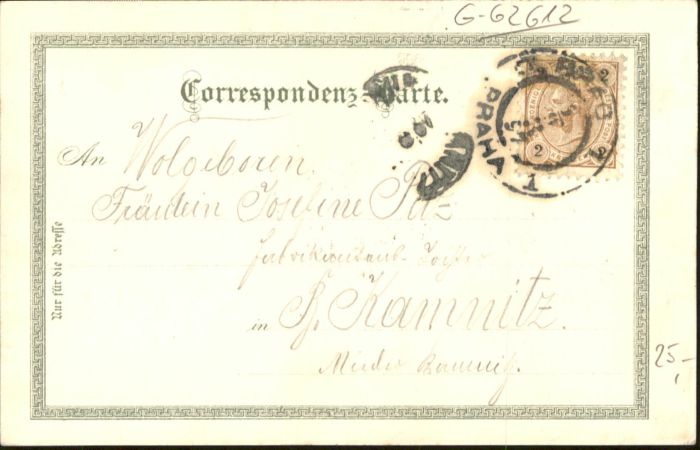 G-62612
Correspondenz-Karte.
2 2
2 2
PRAHA 1
An Wolgeboren
Fräulein Josefine
Fabrikantens-Tochter
in B. Kamnitz.
Nieder Kamnitz.
Nur für die Adresse
25,-